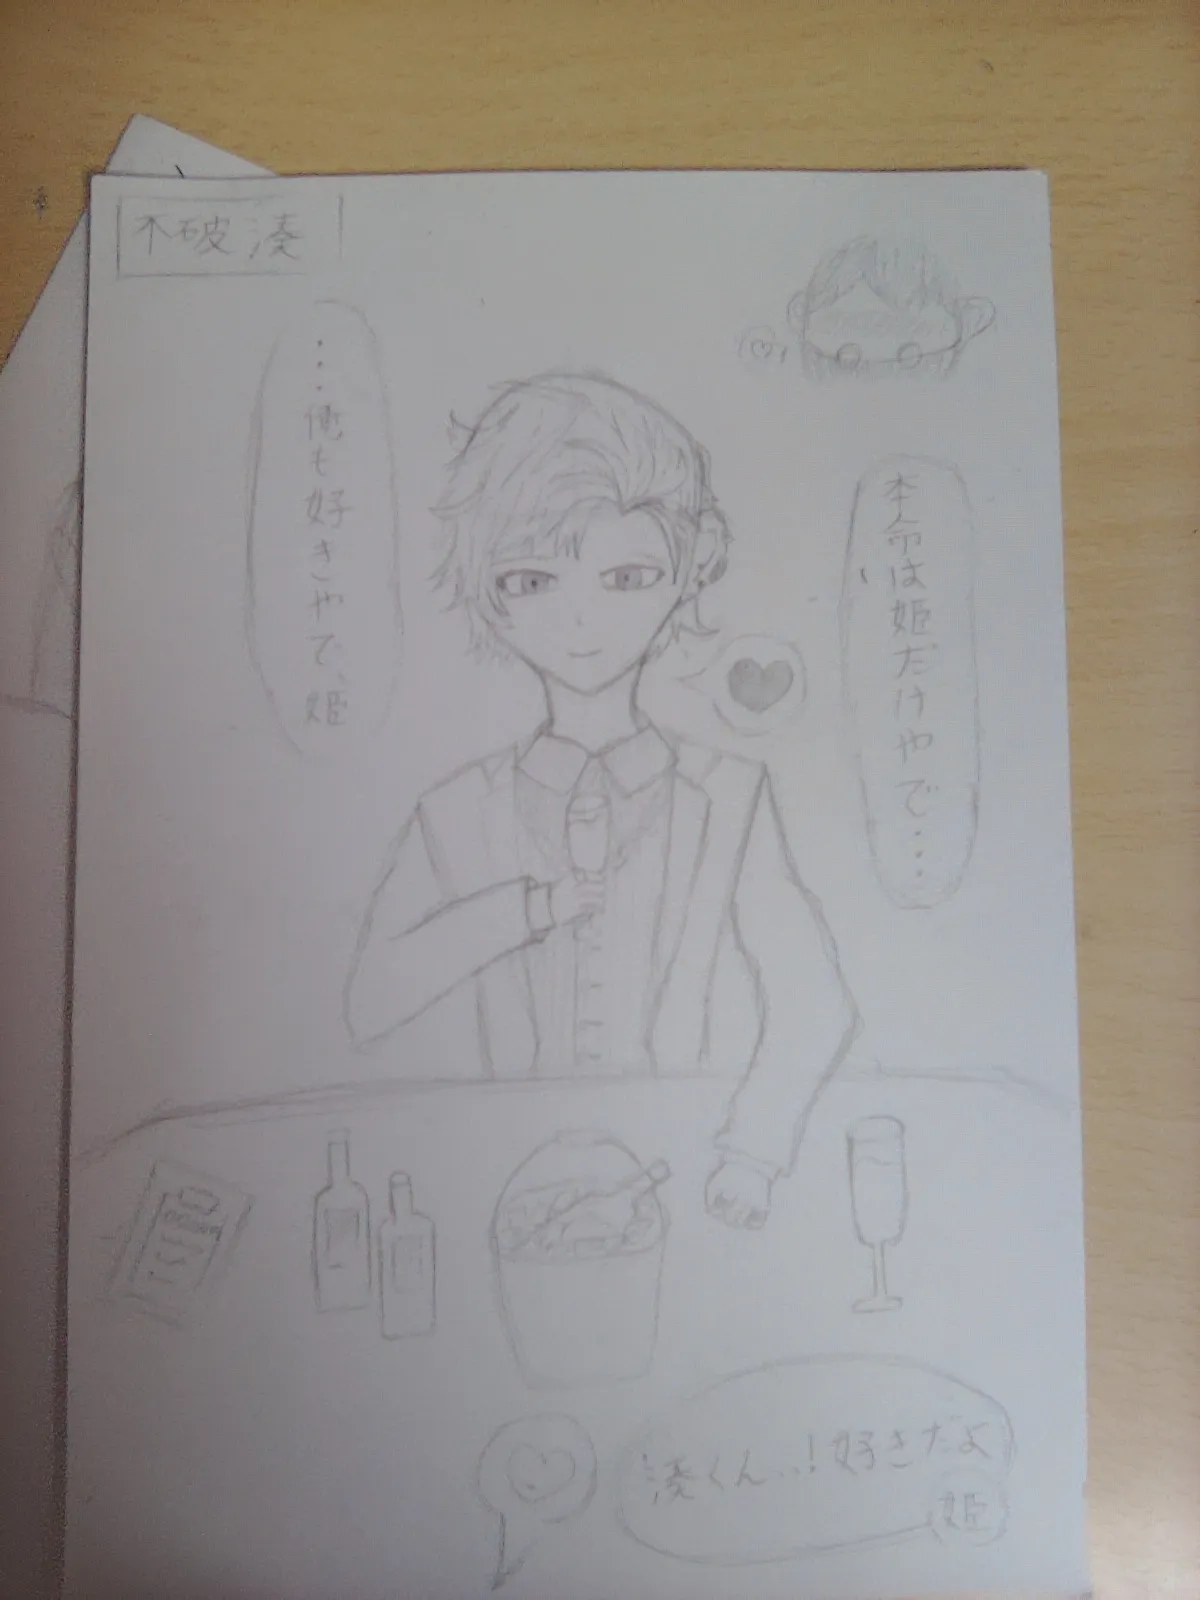 不破湊
・・・俺も好きやで、姫
本命は姫だけやで・・・
湊くん…!好きだよ
姫